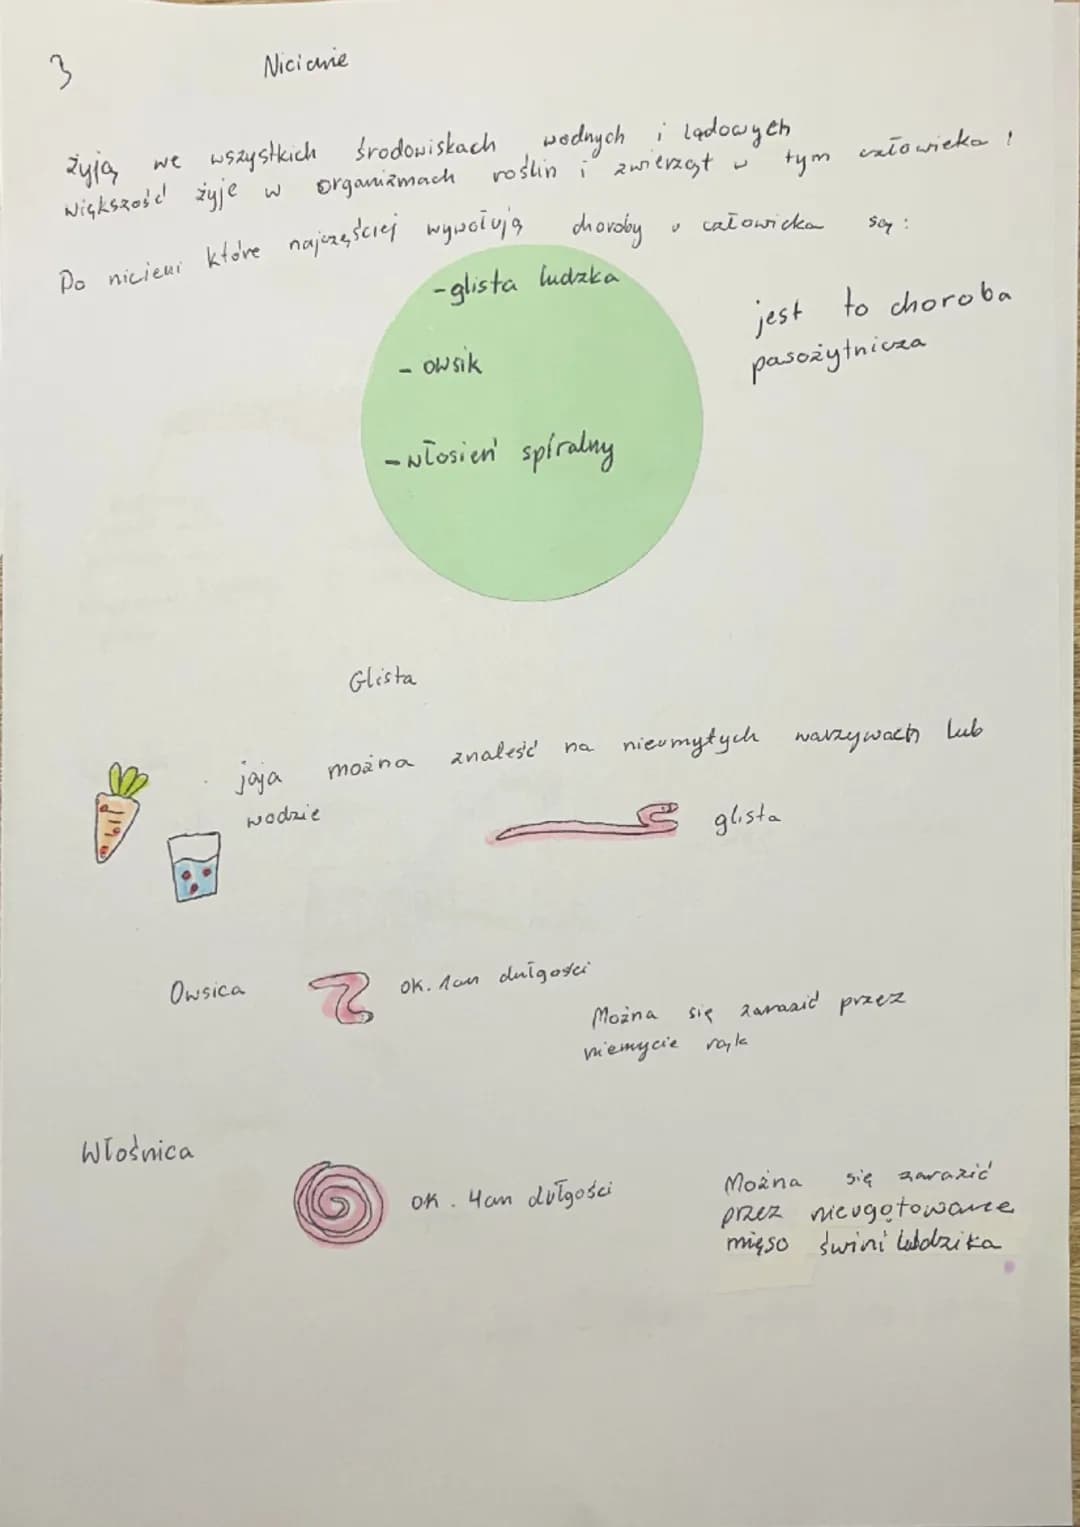 3 Nicienie
żyją we wszystkich środowiskach wodnych i lądowych
większość żyje w organizmach roślin i zwierząt w tym człowieka !
Do nicieni które najczęściej wywołują choroby u człowieka są :
- glista ludzka
jest to choroba
pasożytnicza
- owsik
- włosień spiralny
Glista
jaja można znaleść na nieumytych warzywach lub
wodzie
glista
Owsica
ok. 1cm dułgości
Można się zarazić przez
niemycie rąk
Włośnica
ok. 4cm dułgości
Można się zarazić
przez nieugotowane
mięso świni lub dzika